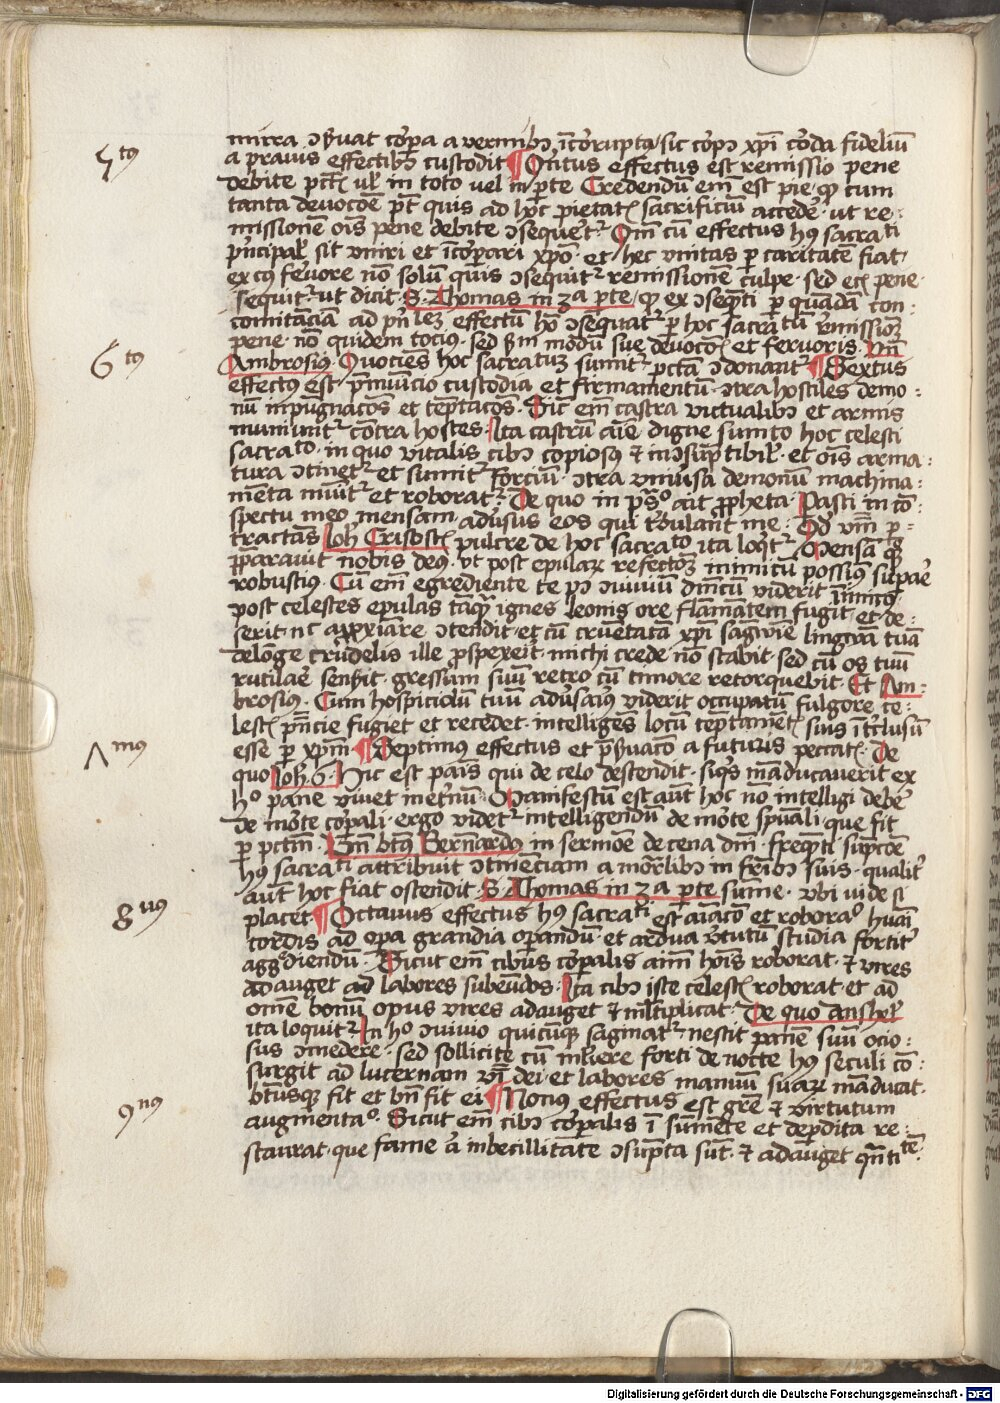 mirra ɔẜuat cōꝑa a vermibꝫ īcorrupta / sic corpꝫ xp̄i corda fideliū
5tꝰ
a prauis effectibꝫ custodit ¶ Qintus effectus est remissio pene
debite pctīs vl' in toto vel in ꝑte Credendū em̄ est pie ꝙ cum
tanta deuocōe pt̄ quis ad hoc pietatis sacrificiū accede' ut re-
missionē oīs pene debite ɔseque't' Qm̄ cū effectus hꝰ sacrati
pn̄cipal' sit vniri et īcorpari xp̄o · et hec vnitas ꝑ caritatē fiat
ex cꝰ feruore nō solū quis ɔsequit' remissionē culpe · sed ecī pene ·
sequit' ut dicit S · Thomas in 3a ꝑte / ꝙ ex ɔseqn̄ti ꝑ quādā con-
comitāciā ad pn̄lem effectū hō ɔsequat' ꝑ hoc sacrātū remissionē
pene · nō quidem tociꝰ · sed ẜm modū sue deuocōis et feruoris · Vn̄
6tꝰ
Ambrosiꝰ · Quocies hoc sacratum sumit' pctā ɔdonant' ¶ Sextus
effectꝰ est · p̄muicio custodia et firmamentū · ɔtra hostiles demo-
nū inpugnacōs et teptacōs · Sic em̄ castra victualibꝫ et armis
muniunt' contra hostes · Ita castrū aīe digne sumto hoc celesti
sacrato · in quo vitalis cibꝫ copiosꝰ et incōsuptibil' · et oīs arma-
tura ɔtinet' et sumit' forciū · ɔtra vniu'sa demonū machina-
mēta muit' et roborat' · De quo in ps̄o ait ꝓpheta · Parasti in cō-
spectu meo mensam · adu'sus eos qui tribulant me · Qd vn̄ ꝑ-
tractās Ioh' Crisostꝰ pulcre de hoc sacrato ita loqt' · Mensā qͣꝫ
p̄parauit nobis deꝰ · vt post epular' refectōem inimicū possimꝰ supare
robustiꝰ · Cū em̄ egrediente te ꝑ ɔuiuiū dnicū viderit inimicꝰ ·
post celestes epulas tāqͣꝫ ignes leonis ore flāmantem fugit · et de-
serit nc aproxiāre ɔtendit · et cū cruētatā xp̄i sangwīe lingwā tuā
delonge crudelis ille prospexerit · michi crede nō stabit · sed cū os tuū
rutilare senserit · gressum suū retro cū timore retorquebit · Et Am-
brosiꝰ · Cum hospiciolū tuū adu'sariꝰ viderit occupatū fulgore ce-
lestis pn̄cie fugiet et recedet · intelliges locū teptamētis suis īterclusū
7mꝰ
esse ꝑ xp̄m · ¶ Septimꝰ effectus et p̄ẜuacō a futuris peccatis · De
quo Ioh' 6 · Hic est panis qui de celo descendit · siqͥs māducauerit ex
hͦ pane viuet inet'nū · Manifestū est aūt hoc nō intelligi debe'
de mo'te corꝑali · ergo videt' intelligendū de mo'te spūali que fit
ꝑ pctm̄ · Vn̄ btꝰ Bernardꝰ in sermōe de cena dm̄ · freqn̄ti sumpcōe
hꝰ sacrati attribuit ɔtinēciam a mortalibꝫ in fratribꝫ suis · qualit'
aūt hoc fiat ostendit · S · Thomas in 3a · ꝑte sume · vbi vide si
8uꝰ
placet · ¶ Octauus effectus hꝰ sacrati est aīacō et roboraͦ huāi
cordis ad opa grandia opandū · et ardua v'tutū studia fortit'
aggrediendū · Sicut em̄ cibus corꝑalis aīm hoīs roborat · et vires
adauget ad labores subeūdos · Ita cibꝫ iste celestis roborat · et ad
omē bonū opus vires adauget et m'ltiplicat · De quo Anshel'
ita loquit' In hͦ ɔuiuio quicūqꝫ saginat' nescit panē suū ocio-
sus ɔmedere · sed sollicite cū mliere forti de nocte hꝰ seculi cō-
surgit ad lucernam v'bi dei · et labores manuū suar' māducat ·
9nꝰ
btūsqꝫ fit et bn̄ fit ei ¶ Nonus effectus est gr̄e et virtutum
augmentaͦ · Sicut em̄ cibꝫ corꝑalis ī sumēte et deꝑdita re-
staurat · que fame a' inbecillitate ɔsūpta sūt · et adauget qn̄titē ·
Digitalisierung gefördert durch die Deutsche Forschungsgemeinschaft - DFG